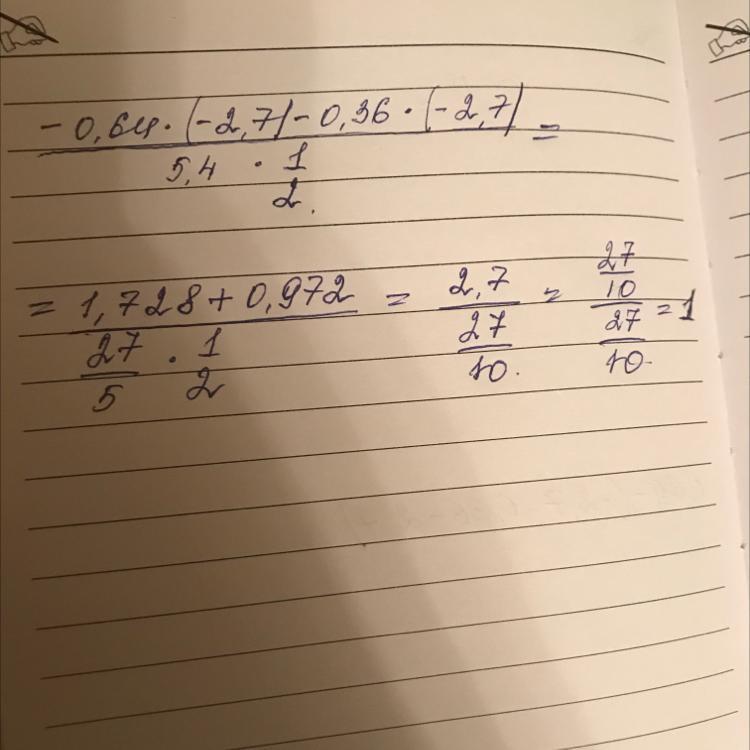 - 0,64 · (-2,7) - 0,36 · (-2,7) =
5,4 · 1
2.
= 1,728 + 0,972 = 2,7 = 27/10 = 1
27/5 · 1/2 27/10. 27/10.